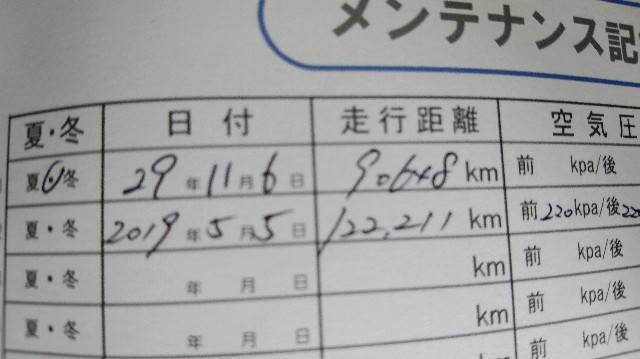 メンテナンス記
夏・冬 日付 走行距離 空気圧
夏・冬 29年11月6日 90648km 前 kpa/後
夏・冬 2019年5月5日 122,211km 前220kpa/後220
夏・冬 年 月 日 km 前 kpa/後
夏・冬 年 月 日 km 前 kpa/後
kpa/後